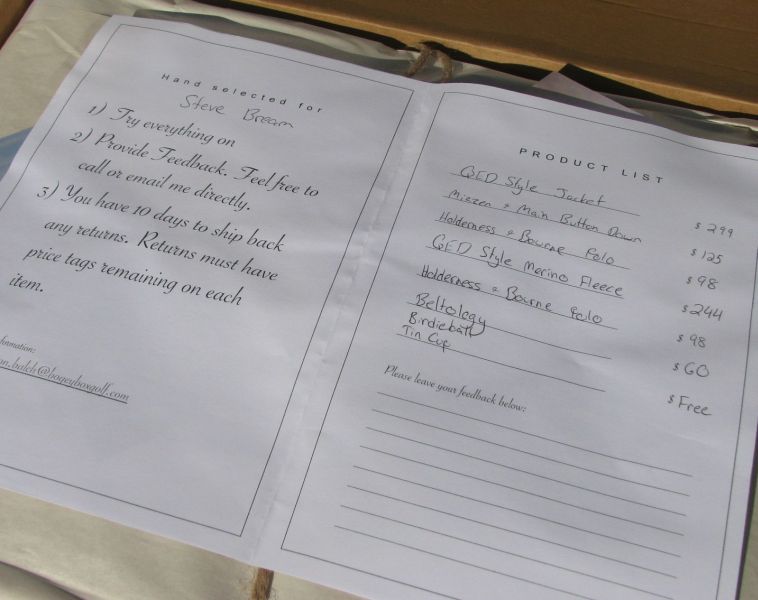 Hand selected for
Steve Bream
1) Try everything on
2) Provide Feedback. Feel free to
call or email me directly.
3) You have 10 days to ship back
any returns. Returns must have
price tags remaining on each
item.
formation:
an.balch@bogeyboxgolf.com
PRODUCT LIST
QED Style Jacket $299
Mizzen + Main Button Down $125
Holderness & Bourne Polo $98
QED Style Merino Fleece $244
Holderness & Bourne Polo $98
Beltology $60
Birdieball
Tin Cup $Free
Please leave your feedback below: